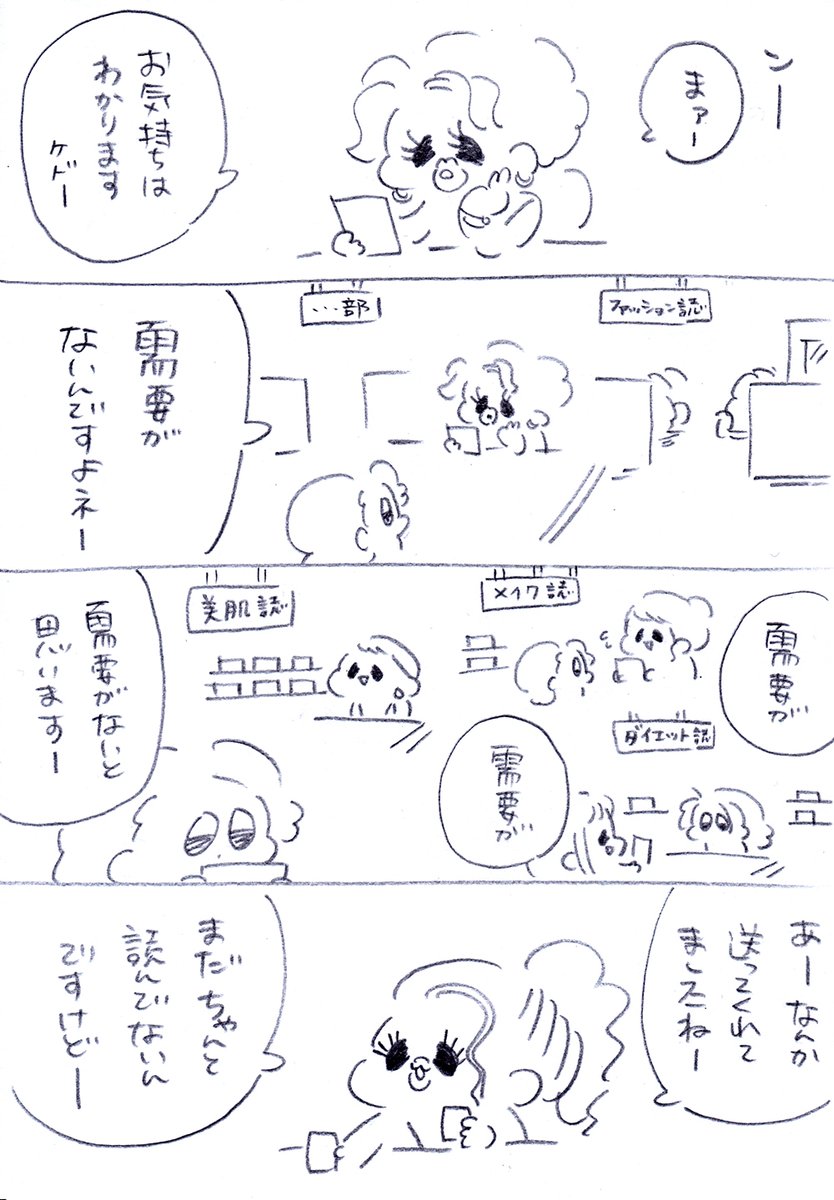 ンー
まァー
お気持ちは
わかります
ケドー
ファッション誌
…部
需要が
ないんですよネー
需要が
メイク誌
ダイエット誌
需要が
美肌誌
需要がないと
思いますー
あーなんか
送ってくれて
ましたねー
まだちゃんと
読んでないん
ですけどー